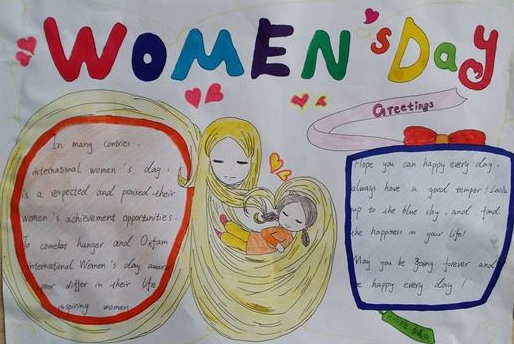 WOMEN'S DAY
Greetings
In many contries.
international women's day,
is a respected and praised their
women's achievement opportunities.
To combat hunger and Oxfam
international Women's day award
differ in their life
inspiring women
Hope you can happy every day.
always have a good temper! Look
up to the blue sky, and find
the happiness in your life!
May you be young forever and
be happy every day!